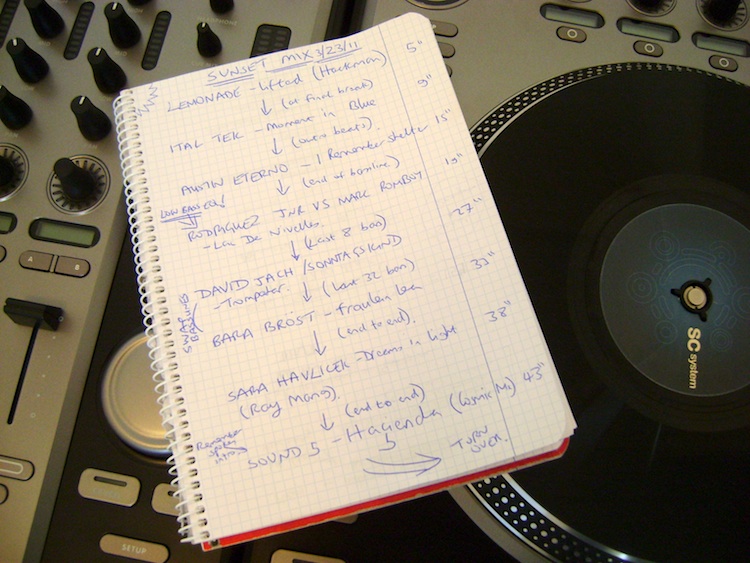 SUNSET MIX 3/23/11
LEMONADE - Lifted (Hackman) 5"
↓ (at final break)
ITAL TEK - Moment in Blue 9"
↓ (outro beats).
AUSTIN ETERNO - I Remember Shelter 15"
↓ (end of bassline)
LOW BASS EQ!
RODRIGUEZ JNR VS MARC ROMBOY 19"
- Les De Nivelles.
↓ (Last 8 bars) 27"
DAVID JACH / SONNTAGSKIND
- Trompeter.
↓ (Last 32 bars) 33"
SWAP LINES
BARA BRÖST - Fraulein Lea
↓ (end to end). 38"
SARA HAVLICEK - Dreams in Light
(Ray Mang).
↓ (end to end) 43"
Remember
spoken
intro
SOUND 5 - Hacienda (Cosmic Mx)
TURN
OVER.
SC
system
A B
SETUP